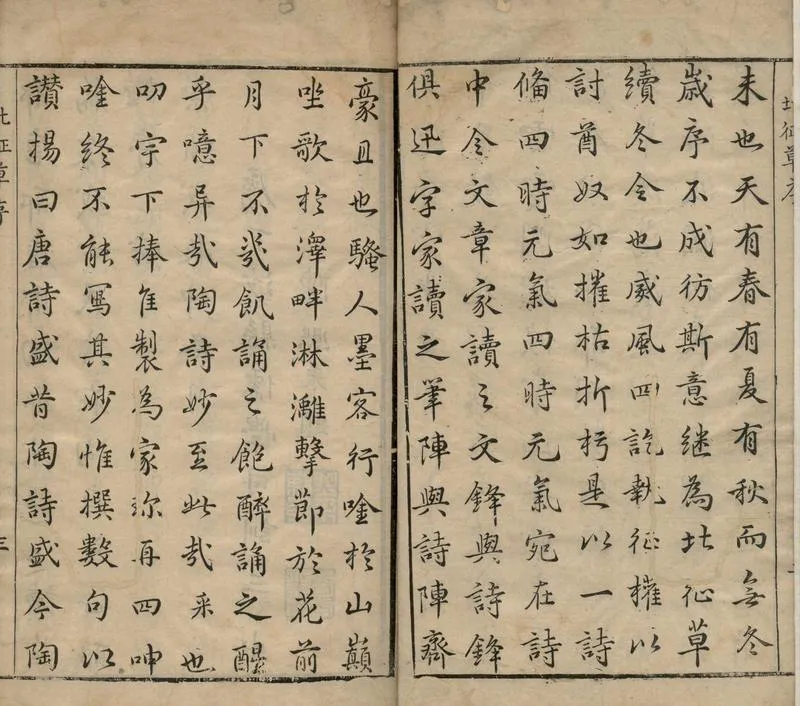 北征草序
未也天有春有夏有秋而無冬
歲序不成彷斯意継為北征草
續冬令也威風四訖執征權以
討酋奴如摧枯折朽是以一詩
俻四時元氣四時元氣宛在詩
中令文章家讀之文鋒與詩鋒
俱迅字家讀之筆陣與詩陣齊
豪且也騷人墨客行唫於山巔
坐歌於澤畔淋灕擊節於花前
月下不幾飢誦之飽醉誦之醒
乎噫异哉陶詩妙至此哉采也
叨宇下捧隹製為家珎再四呻
唫終不能寫其妙惟撰數句以
讃揚曰唐詩盛昔陶詩盛今陶
北征草序 三